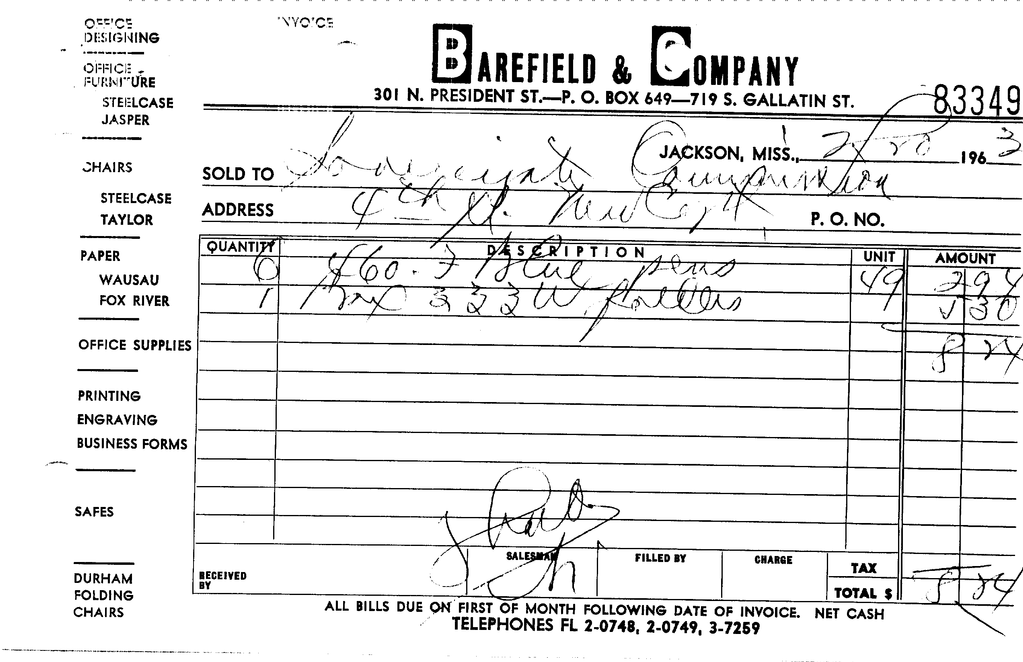 OFFICE
DESIGNING
INVOICE
BAREFIELD & COMPANY
OFFICE
FURNITURE
STEELCASE
JASPER
301 N. PRESIDENT ST.—P. O. BOX 649—719 S. GALLATIN ST.
83349
JACKSON, MISS., 2/20 1963
CHAIRS
STEELCASE
TAYLOR
SOLD TO
ADDRESS 4th
P. O. NO.
PAPER
WAUSAU
FOX RIVER
QUANTITY DESCRIPTION UNIT AMOUNT
6 460. F Blue pens 49 2 94
1 Box 333 W. 5 30
8 24
OFFICE SUPPLIES
PRINTING
ENGRAVING
BUSINESS FORMS
SAFES
DURHAM
FOLDING
CHAIRS
Paid
RECEIVED
BY
SALESMAN FILLED BY CHARGE TAX
TOTAL $ 8 24
ALL BILLS DUE ON FIRST OF MONTH FOLLOWING DATE OF INVOICE. NET CASH
TELEPHONES FL 2-0748, 2-0749, 3-7259